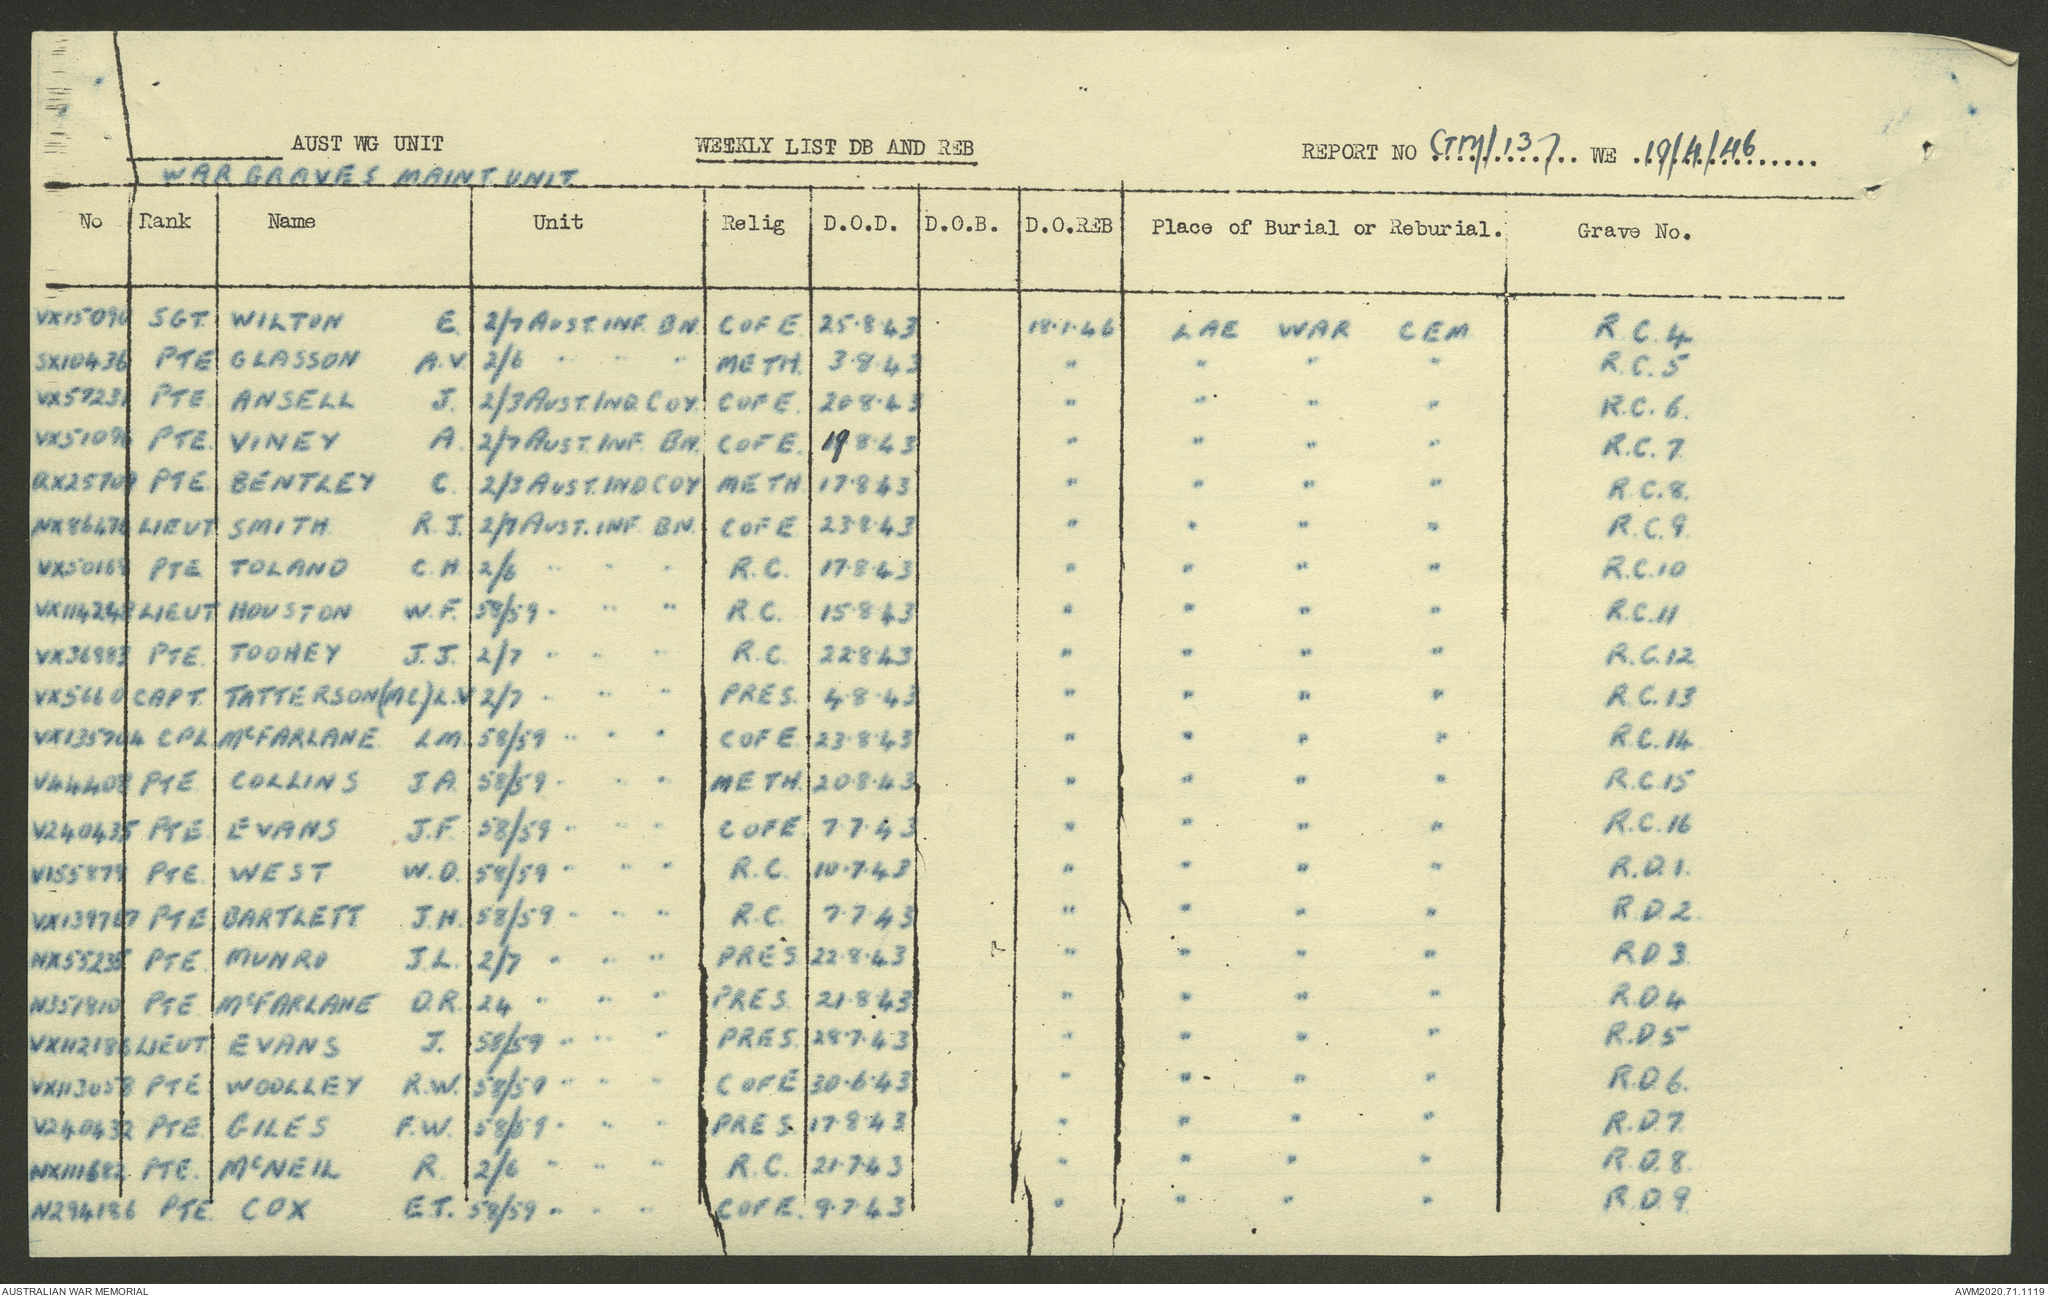 AUST WG UNIT WEEKLY LIST DB AND REB REPORT NO GTM/137 WE 19/4/46
WAR GRAVES MAINT UNIT
No Rank Name Unit Relig D.O.D. D.O.B. D.O.REB Place of Burial or Reburial. Grave No.
VX15090 SGT. WILTON E. 2/7 AUST. INF. BN. C OF E 25.8.43 18.1.46 LAE WAR CEM R.C.4
SX10436 PTE GLASSON A.V. 2/6 " " " METH. 3.8.43 " " " " R.C.5
VX57231 PTE. ANSELL J. 2/3 AUST. IND. COY. C OF E. 20.8.43 " " " " R.C.6.
VX51096 PTE. VINEY A. 2/7 AUST. INF. BN. C OF E. 19.8.43 " " " " R.C.7.
QX25709 PTE. BENTLEY C. 2/3 AUST. IND. COY METH 17.8.43 " " " " R.C.8.
NX86476 LIEUT SMITH. R.J. 2/7 AUST. INF. BN. C OF E 23.8.43 " " " " R.C.9.
VX50169 PTE TOLAND C.H. 2/6 " " " R.C. 17.8.43 " " " " R.C.10
VX114243 LIEUT HOUSTON W.F. 58/59 " " " R.C. 15.8.43 " " " " R.C.11
VX36983 PTE. TOOHEY J.J. 2/7 " " " R.C. 22.8.43 " " " " R.C.12
VX5660 CAPT. TATTERSON (MC) L.V 2/7 " " " PRES. 4.8.43 " " " " R.C.13
VX135704 CPL McFARLANE L.M. 58/59 " " " C OF E 23.8.43 " " " " R.C.14
V44408 PTE COLLINS J.A. 58/59 " " " METH. 20.8.43 " " " " R.C.15
V240435 PTE. EVANS J.F. 58/59 " " " C OF E 7.7.43 " " " " R.C.16
V155879 PTE. WEST W.D. 58/59 " " " R.C. 10.7.43 " " " " R.D.1.
VX139767 PTE BARTLETT J.H. 58/59 " " " R.C. 7.7.43 " " " " R.D.2.
NX55235 PTE. MUNRO J.L. 2/7 " " " PRES 22.8.43 " " " " R.D.3.
N351810 PTE McFARLANE D.R. 24 " " " PRES. 21.8.43 " " " " R.D.4
VX112186 LIEUT. EVANS J. 58/59 " " " PRES. 28.7.43 " " " " R.D.5
VX113058 PTE WOOLLEY R.W. 58/59 " " " C OF E 30.6.43 " " " " R.D.6.
V240432 PTE. GILES F.W. 58/59 " " " PRES 17.8.43 " " " " R.D.7.
NX111682 PTE. McNEIL R. 2/6 " " " R.C. 21.7.43 " " " " R.D.8.
N294186 PTE. COX E.T. 58/59 " " " C OF E. 9.7.43 " " " " R.D.9.
AUSTRALIAN WAR MEMORIAL AWM2020.71.1119